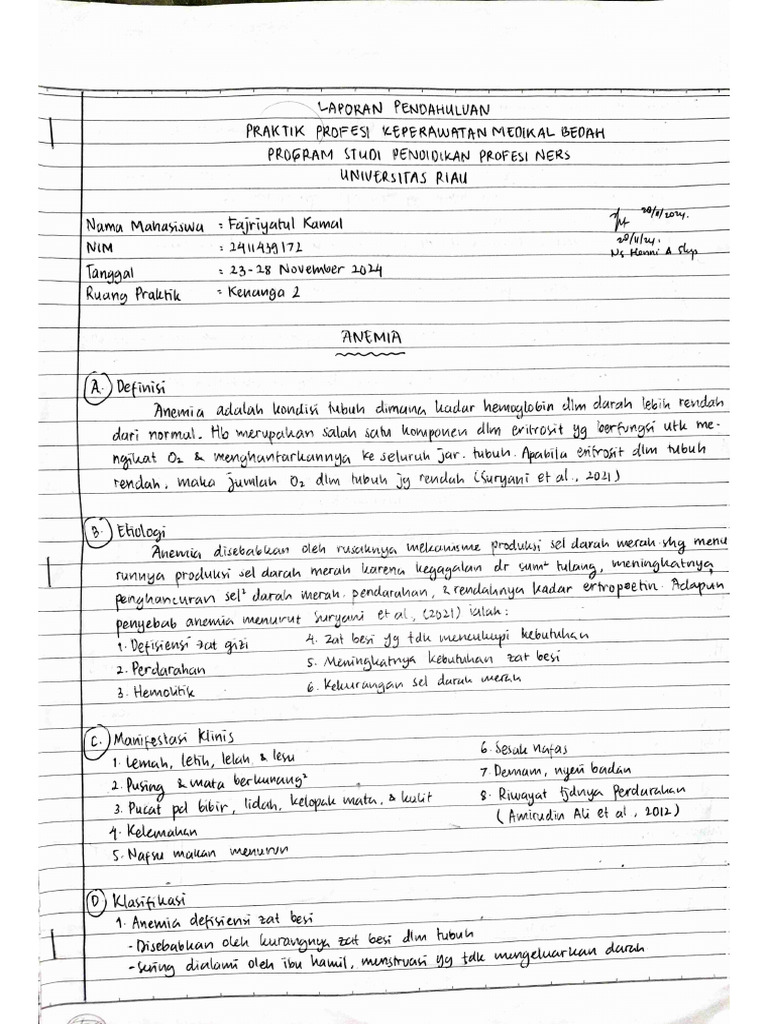 LAPORAN PENDAHULUAN
PRAKTIK PROFESI KEPERAWATAN MEDIKAL BEDAH
PROGRAM STUDI PENDIDIKAN PROFESI NERS
UNIVERSITAS RIAU
Nama Mahasiswa : Fajriyatul Kamal
NIM : 2411439172
Tanggal : 23-28 November 2024
Ruang Praktik : Kenanga 2
20/11/2024.
20/11/24.
Ns Henni A Skp
ANEMIA
A. Definisi
Anemia adalah kondisi tubuh dimana kadar hemoglobin dlm darah lebih rendah
dari normal. Hb merupakan salah satu komponen dlm eritrosit yg berfungsi utk me-
ngikat O2 & menghantarkannya ke seluruh jar. tubuh. Apabila eritrosit dlm tubuh
rendah, maka jumlah O2 dlm tubuh jg rendah (Suryani et al., 2021)
B. Etiologi
Anemia disebabkan oleh rusaknya mekanisme produksi sel darah merah shg menu
runnya produksi sel darah merah karena kegagalan dr sum² tulang, meningkatnya
penghancuran sel² darah merah, pendarahan, & rendahnya kadar ertropoetin. Adapun
penyebab anemia menurut Suryani et al., (2021) ialah:
1. Defisiensi zat gizi 4. Zat besi yg tdk mencukupi kebutuhan
2. Perdarahan 5. Meningkatnya kebutuhan zat besi
3. Hemolitik 6. Kekurangan sel darah merah
C. Manifestasi Klinis
1. Lemah, letih, lelah & lesu 6. Sesak nafas
2. Pusing & mata berkunang² 7. Demam, nyeri badan
3. Pucat pd bibir, lidah, kelopak mata, & kulit 8. Riwayat tjdnya Perdarahan
4. Kelemahan (Amirudin Ali et al, 2012)
5. Nafsu makan menurun
D Klasifikasi
1. Anemia defisiensi zat besi
- Disebabkan oleh kurangnya zat besi dlm tubuh
- Sering dialami oleh ibu hamil, menstruasi yg tdk mengeluarkan darah